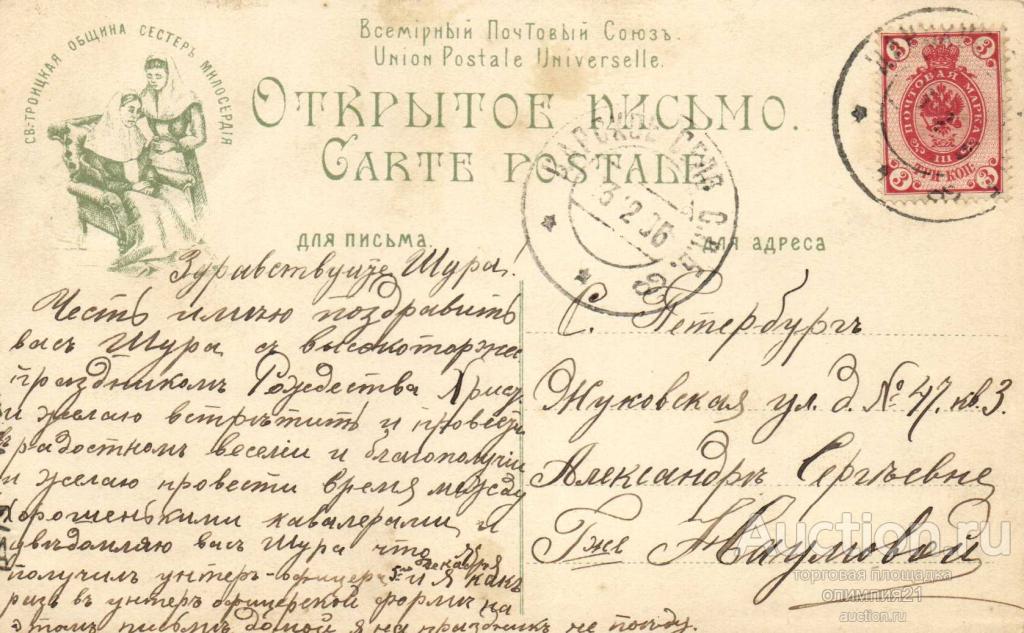 СВ-ТРОИЦКАЯ ОБЩИНА СЕСТЕРЪ МИЛОСЕРДІЯ
Всемірный Почтовый Союзъ.
Union Postale Universelle.
ОТКРЫТОЕ ПИСЬМО.
CARTE POSTALE.
3 3
ПОЧТОВАЯ МАРКА
III
ТРИ КОП.
3 3
ЦАРСКОЕ СЕЛО
3
ДЛЯ ПИСЬМА.
ДЛЯ АДРЕСА
Здравствуйте Шура!
Честь имѣю поздравить
васъ Шура съ высокоторже
праздникомъ Рождества Христ
и желаю встрѣтить и провести
въ радостномъ веселіи и благополучіи
и желаю провести время между
хорошенькими кавалерами, и
увѣдомляю васъ Шура что
декабря
получилъ унтеръ-офицера и я какъ
разъ въ унтеръ офицерской формѣ на
этомъ письмѣ домой я на праздникъ не поѣду.
С. Петербургъ
Жуковская ул. д. № 47. кв 3.
Александрѣ Сергѣевне
Гже Наумовой
Auction.ru
торговая площадка
олимпия21
auction.ru